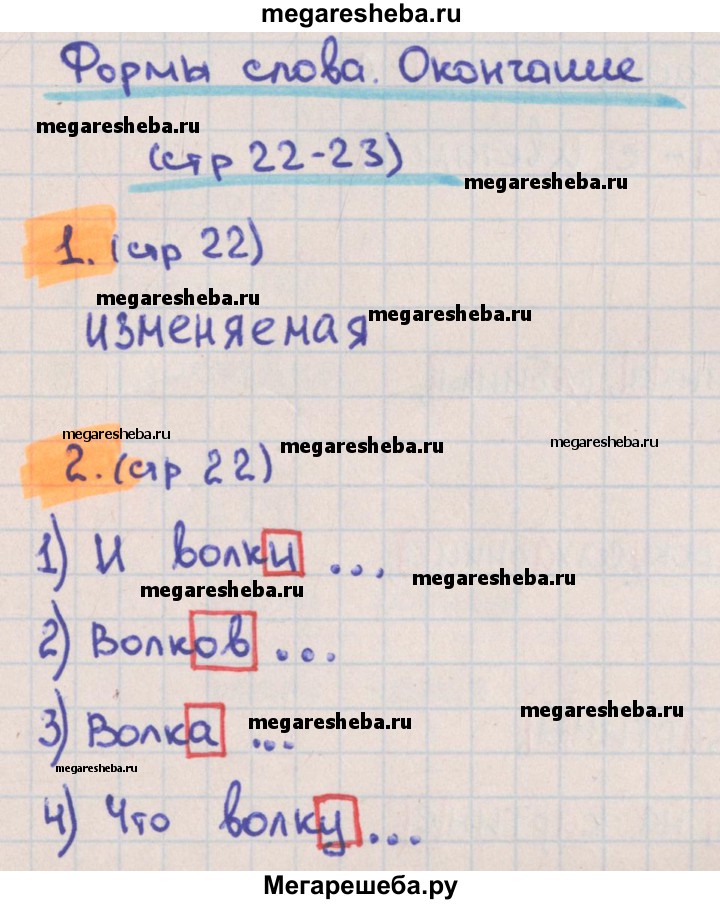 megaresheba.ru
Формы слова. Окончание
megaresheba.ru
(стр 22-23)
megaresheba.ru
1. (стр 22)
megaresheba.ru
megaresheba.ru
изменяемая
megaresheba.ru
megaresheba.ru
megaresheba.ru
2. (стр 22)
1) И волки ...
megaresheba.ru
megaresheba.ru
2) Волков ...
3) Волка ...
megaresheba.ru
megaresheba.ru
megaresheba.ru
4) Что волку ...
Мегарешеба.ру